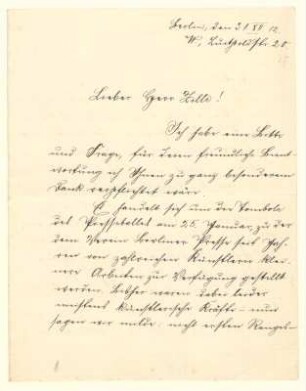 Berlin, den 21 XII 12
W, Luitpoldstr. 20
Lieber Herr Zille!
Ich habe eine Bitte
und Frage, für deren freundliche Beant-
wortung ich Ihnen zu ganz besonderem
Dank verpflichtet wäre.
Es handelt sich um die Tombola
des Presseballes am 25. Januar, zu der
dem Verein Berliner Presse seit Jah-
ren von zahlreichen Künstlern klei-
nere Arbeiten zur Verfügung gestellt
werden. Bisher waren dabei leider
meistens künstlerische Kräfte – nur
sagen wir milde: nicht ersten Ranges –